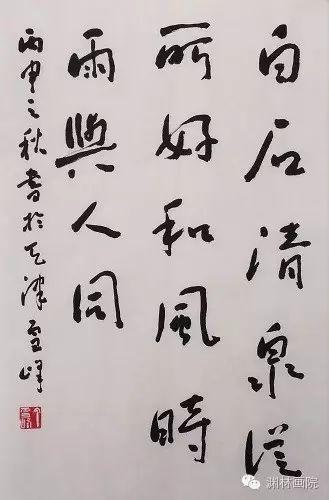 白石清泉從
所好和風時
雨與人同
丙申之秋書於天津雲峰
渊林画院